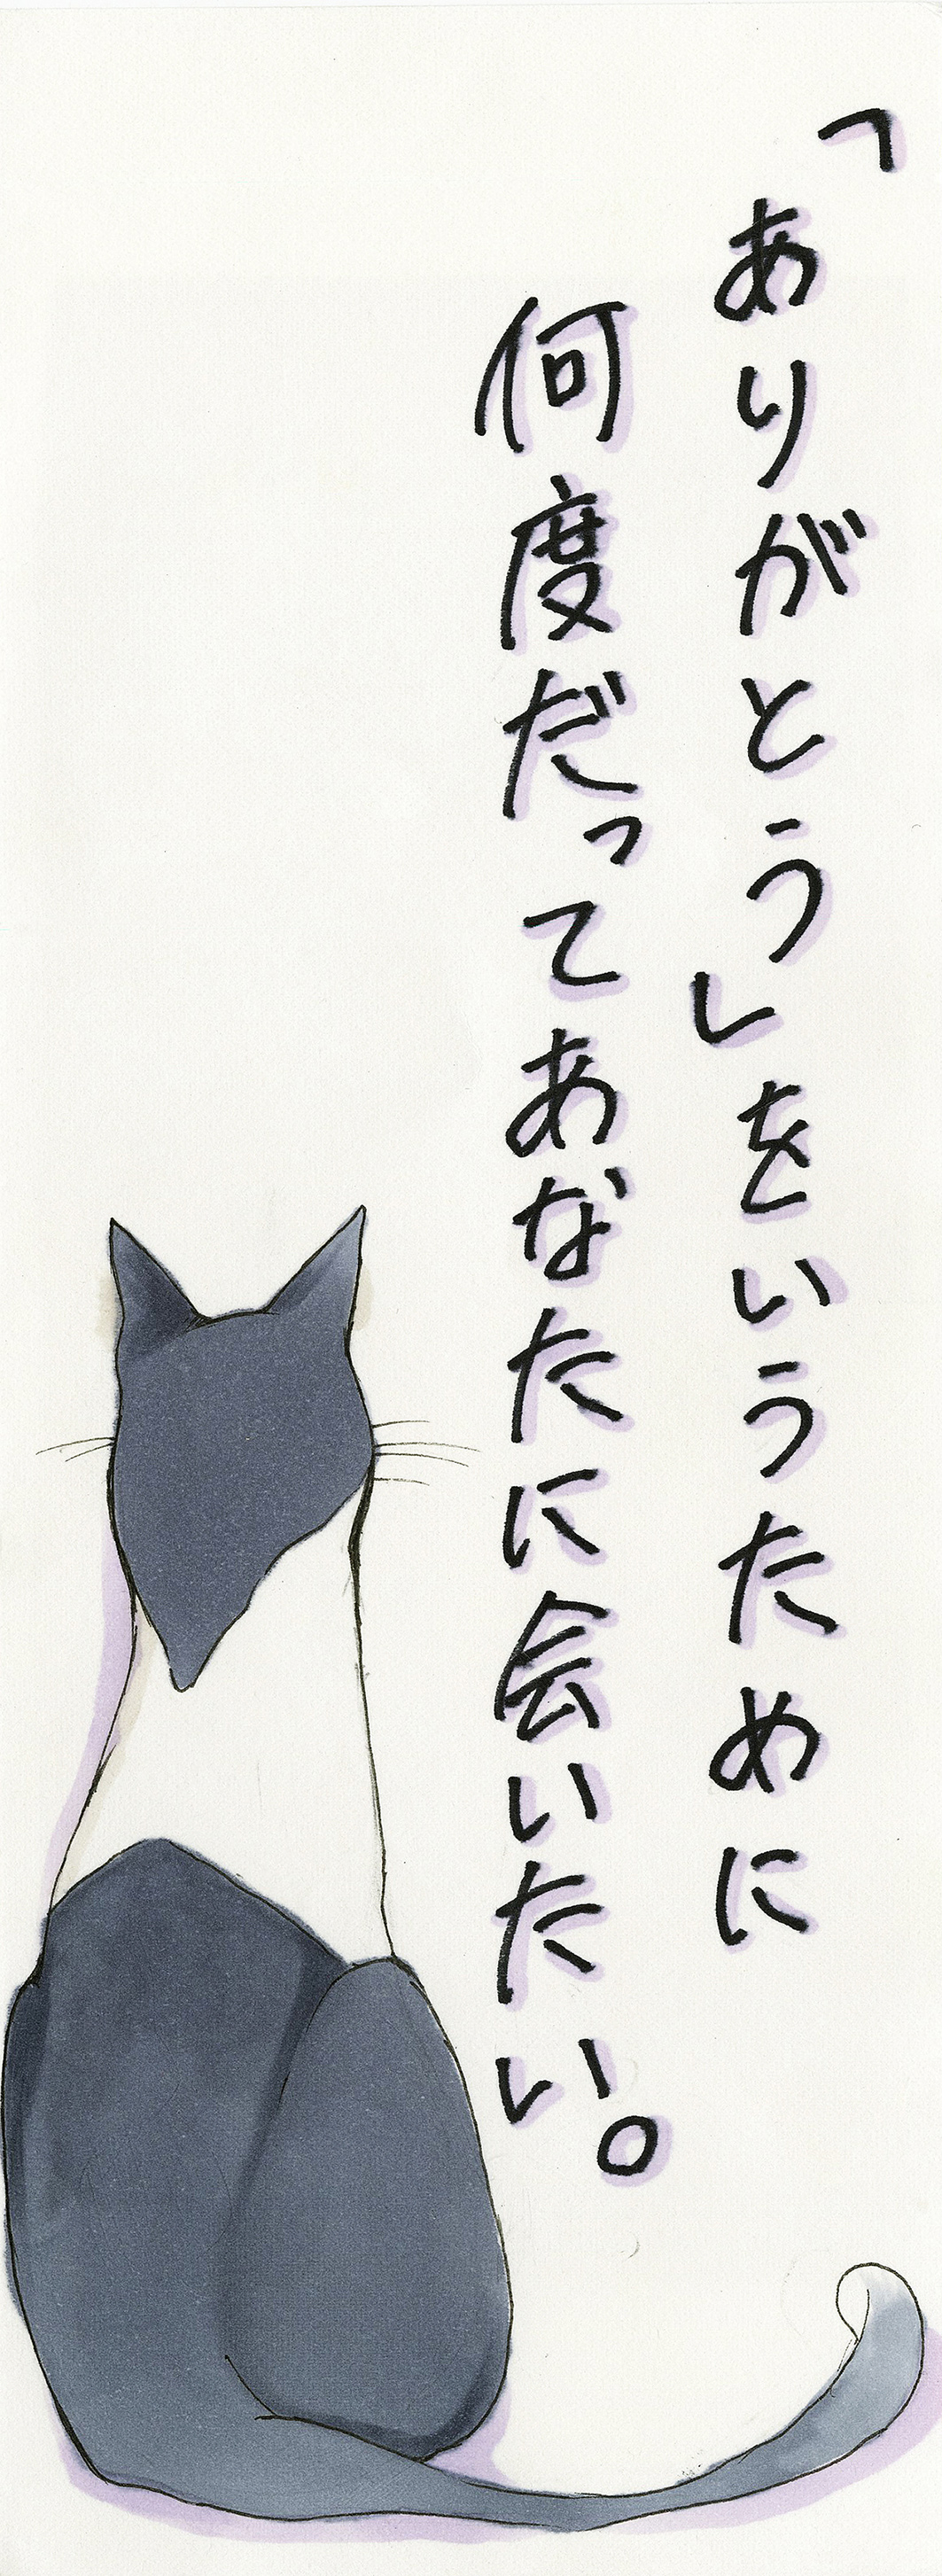 「ありがとう」をいうために
何度だってあなたに会いたい。